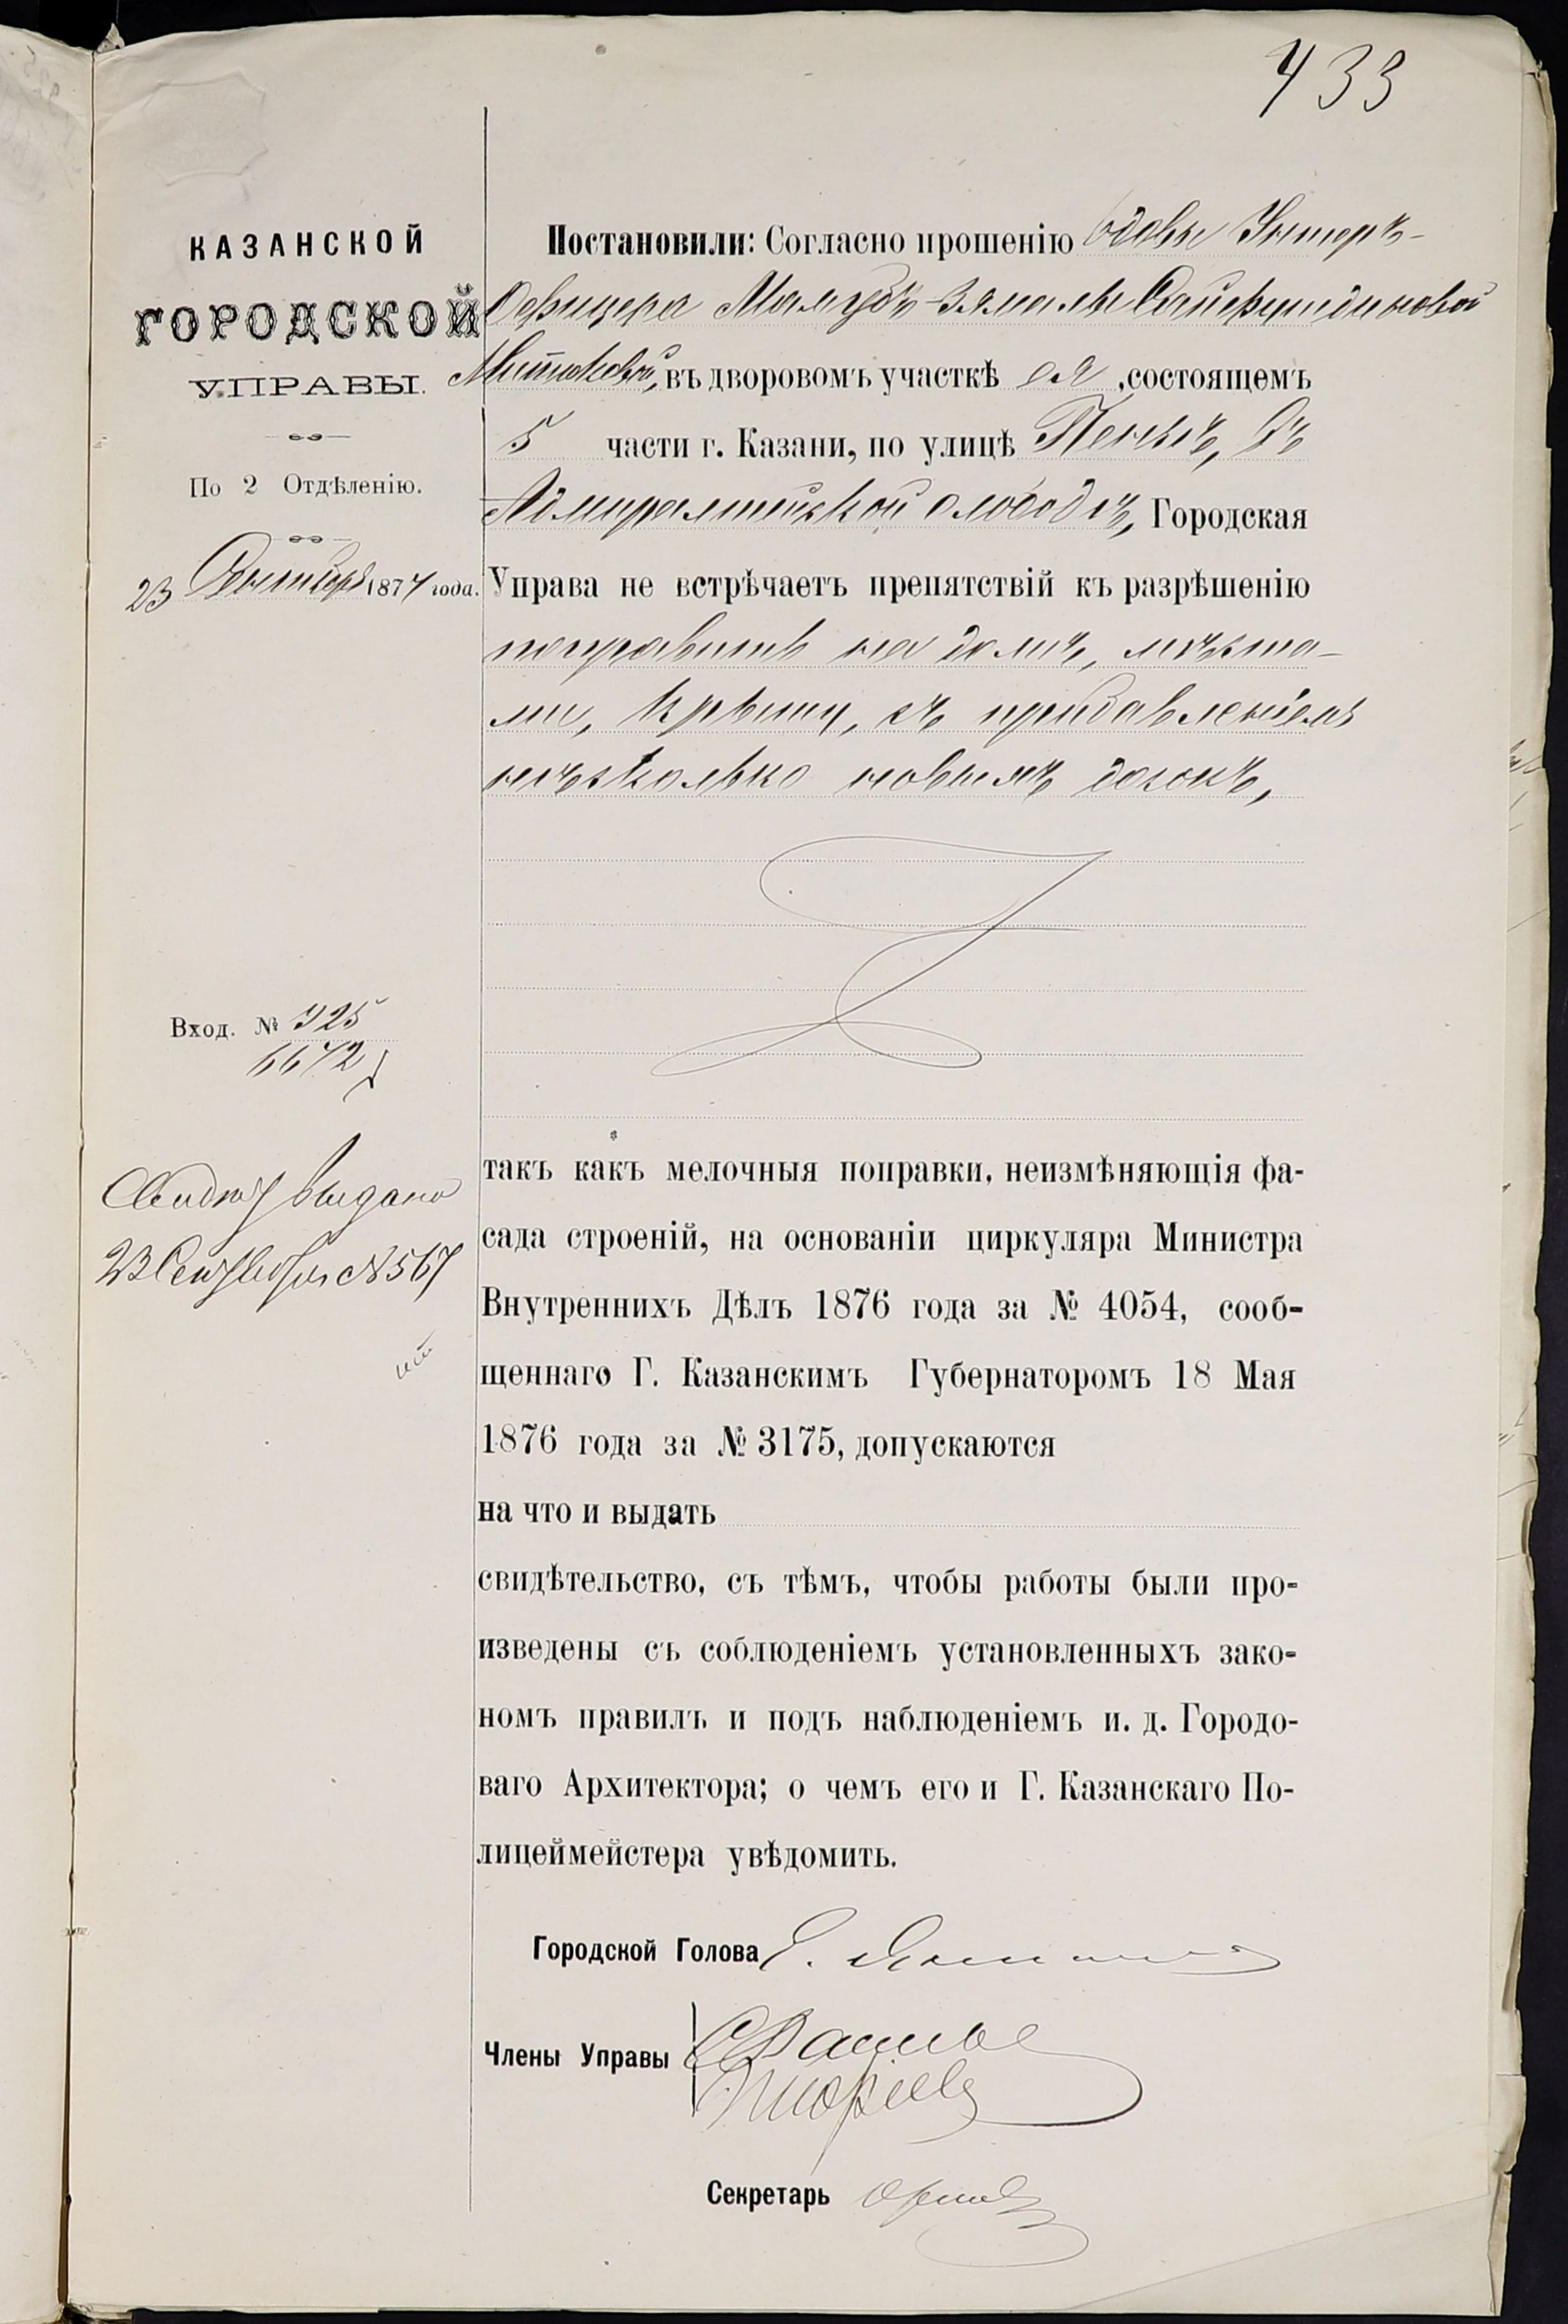 433
КАЗАНСКОЙ
ГОРОДСКОЙ
УПРАВЫ.
По 2 Отдѣленію.
23 Сентября 1877 года.
Вход. № 325
6672
выдано
23 Сентября № 567
Постановили: Согласно прошенію вдовы Унтеръ-
Офицера Сайфутдиновой
въ дворовомъ участкѣ ея, состоящемъ
5 части г. Казани, по улицѣ въ
Адмиралтейской слободѣ, Городская
Управа не встрѣчаетъ препятствій къ разрѣшенію
поправить на домѣ, мѣста-
ми, крышу, съ прибавленіемъ
нѣсколько новыхъ досокъ,
такъ какъ мелочныя поправки, неизмѣняющія фа-
сада строеній, на основаніи циркуляра Министра
Внутреннихъ Дѣлъ 1876 года за № 4054, сооб-
щеннаго Г. Казанскимъ Губернаторомъ 18 Мая
1876 года за № 3175, допускаются
на что и выдать
свидѣтельство, съ тѣмъ, чтобы работы были про-
изведены съ соблюденіемъ установленныхъ зако-
номъ правилъ и подъ наблюденіемъ и. д. Городо-
ваго Архитектора; о чемъ его и Г. Казанскаго По-
лицеймейстера увѣдомить.
Городской Голова
Члены Управы
Секретарь